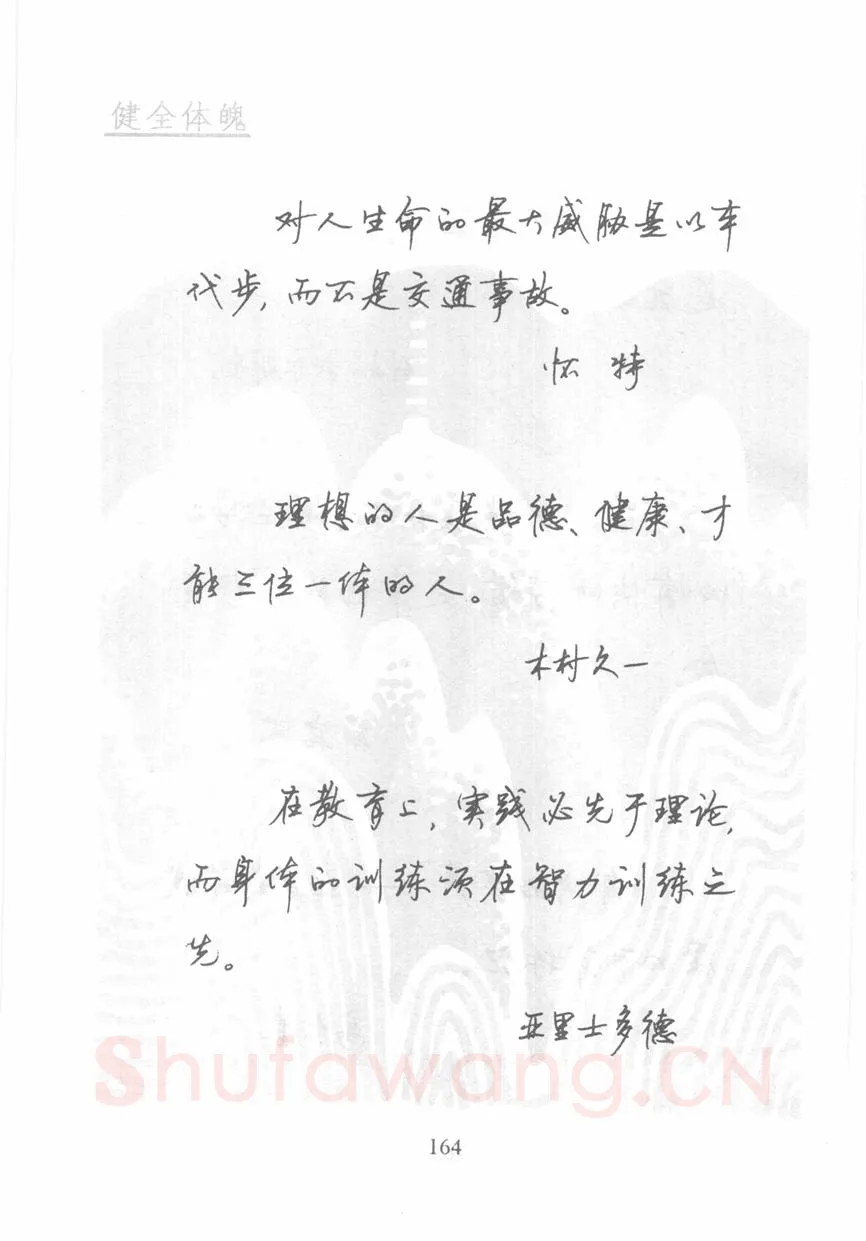 健全体魄
对人生命的最大威胁是以车
代步,而不是交通事故。
怀 特
理想的人是品德、健康、才
能三位一体的人。
木村久一
在教育上,实践必先于理论,
而身体的训练须在智力训练之
先。
亚里士多德
Shufawang.CN
164